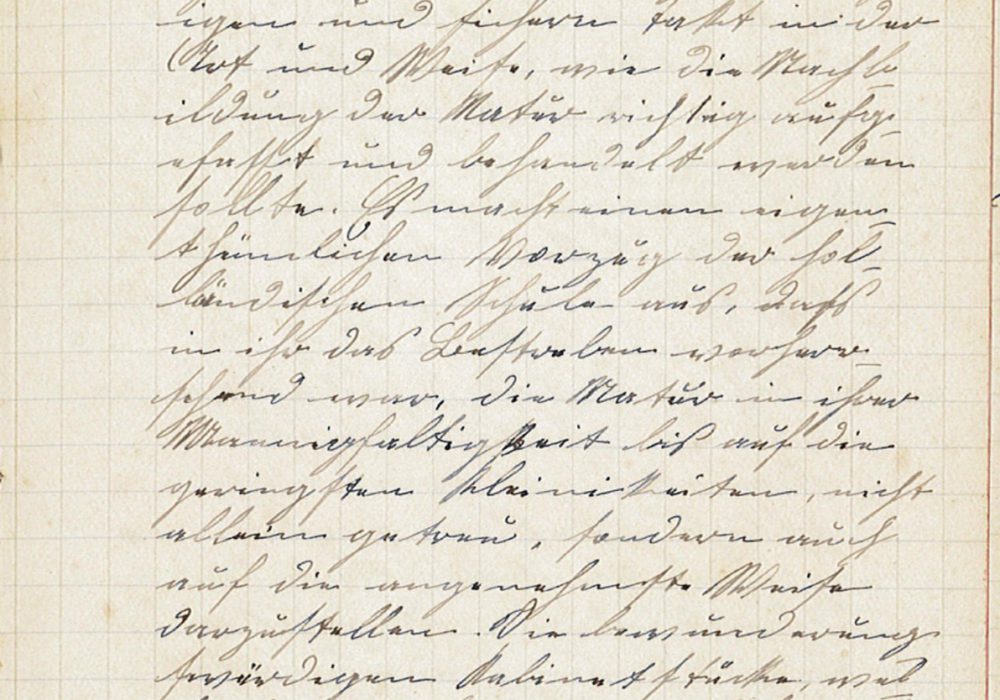 igen und sichern Takt in der
Art und Weise, wie die Nachb-
ildung der Natur richtig aufg-
efasst und behandelt werden
sollte. Es macht einen eigen-
thümlichen Vorzug der hol-
ländischen Schule aus, dass
in ihr das Bestreben vorherr-
schend war, die Natur in ihrer
Mannigfaltigkeit bis auf die
geringsten Kleinikeiten, nicht
allein getreu, sondern auch
auf die angenehmste Weise
darzustellen. Die bewunderung-
swürdigen Kabinetstücke, wel